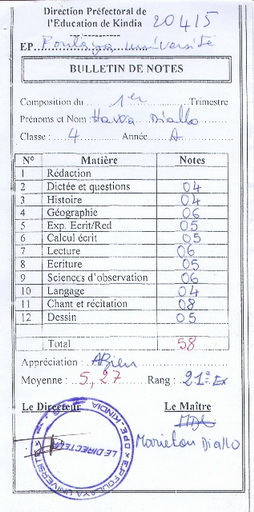 Direction Préfectoral de
l'Education de Kindia 20415
EP Foulaya université
BULLETIN DE NOTES
Composition du 1er Trimestre
Prénoms et Nom Hawa Diallo
Classe : 4 Année A
N° Matière Notes
1 Rédaction
2 Dictée et questions 04
3 Histoire 04
4 Géographie 06
5 Exp. Ecrit/Red 05
6 Calcul écrit 05
7 Lecture 06
8 Ecriture 05
9 Sciences d'observation 06
10 Langage 04
11 Chant et récitation 08
12 Dessin 05
Total 58
Appréciation : ABien
Moyenne : 5,27 Rang : 21e Ex
Le Directeur Le Maître
LE DIRECTEUR
Mariétou Diallo